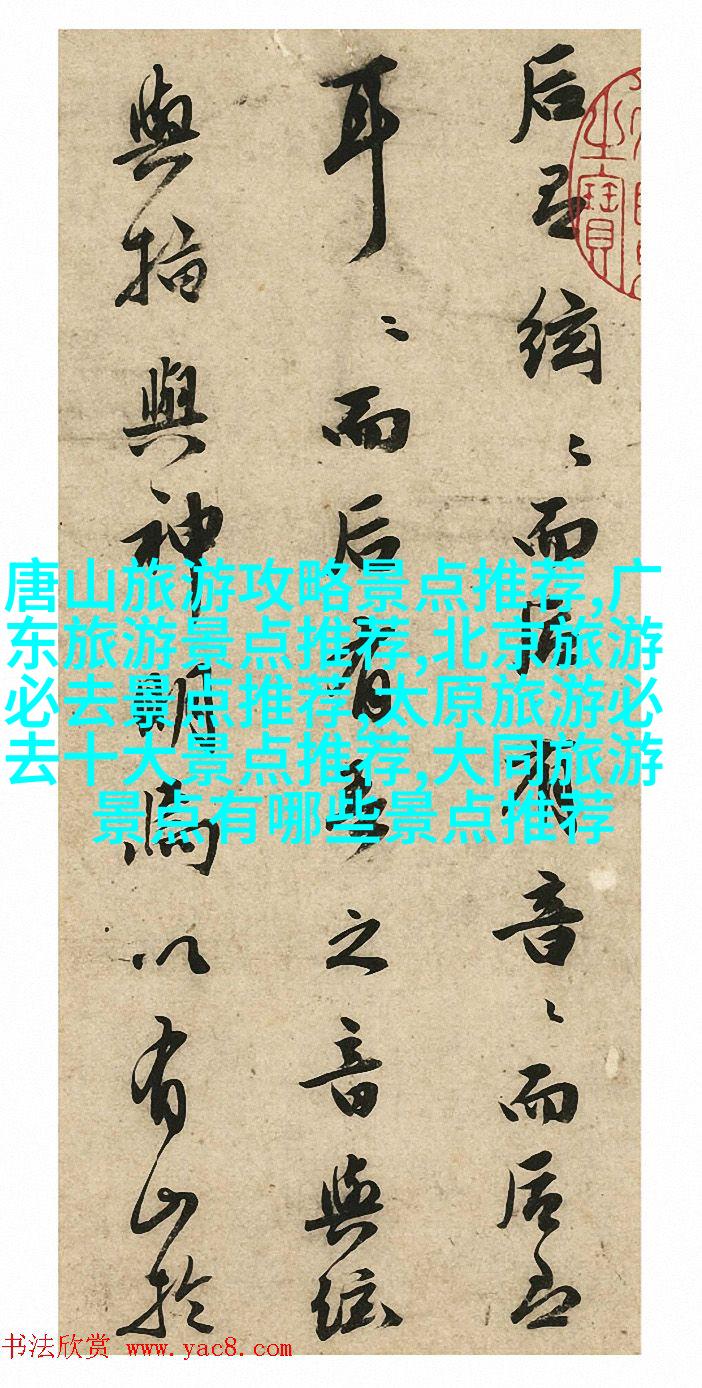 后絃〻而后音〻而后
耳〻而后有之音與絃
與指與神明為以有山於
之寶
唐山旅游攻略景点推荐,广
东旅游景点推荐,北京旅游
必去景点推荐,太原旅游必
去十大景点推荐,大同旅游
景点有哪些景点推荐
书法欣赏 www.yac8.com